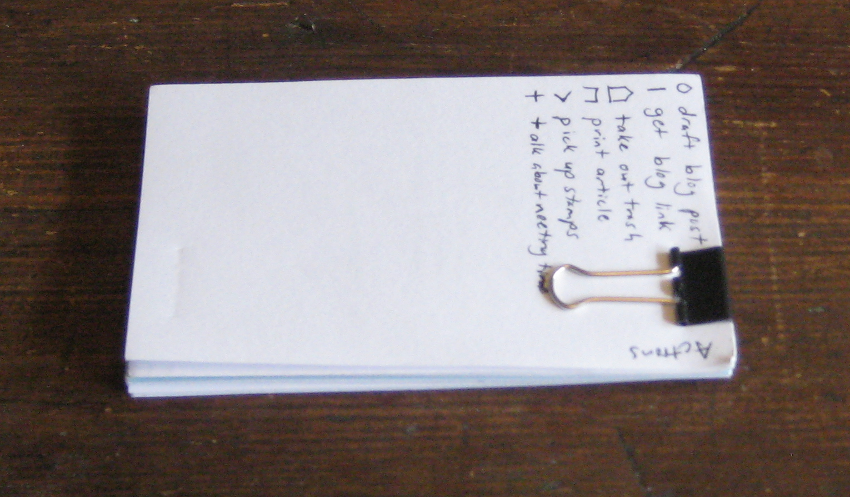 O draft blog post
| get blog link
take out trash
print article
> pick up stamps
+ talk about meeting
Actions